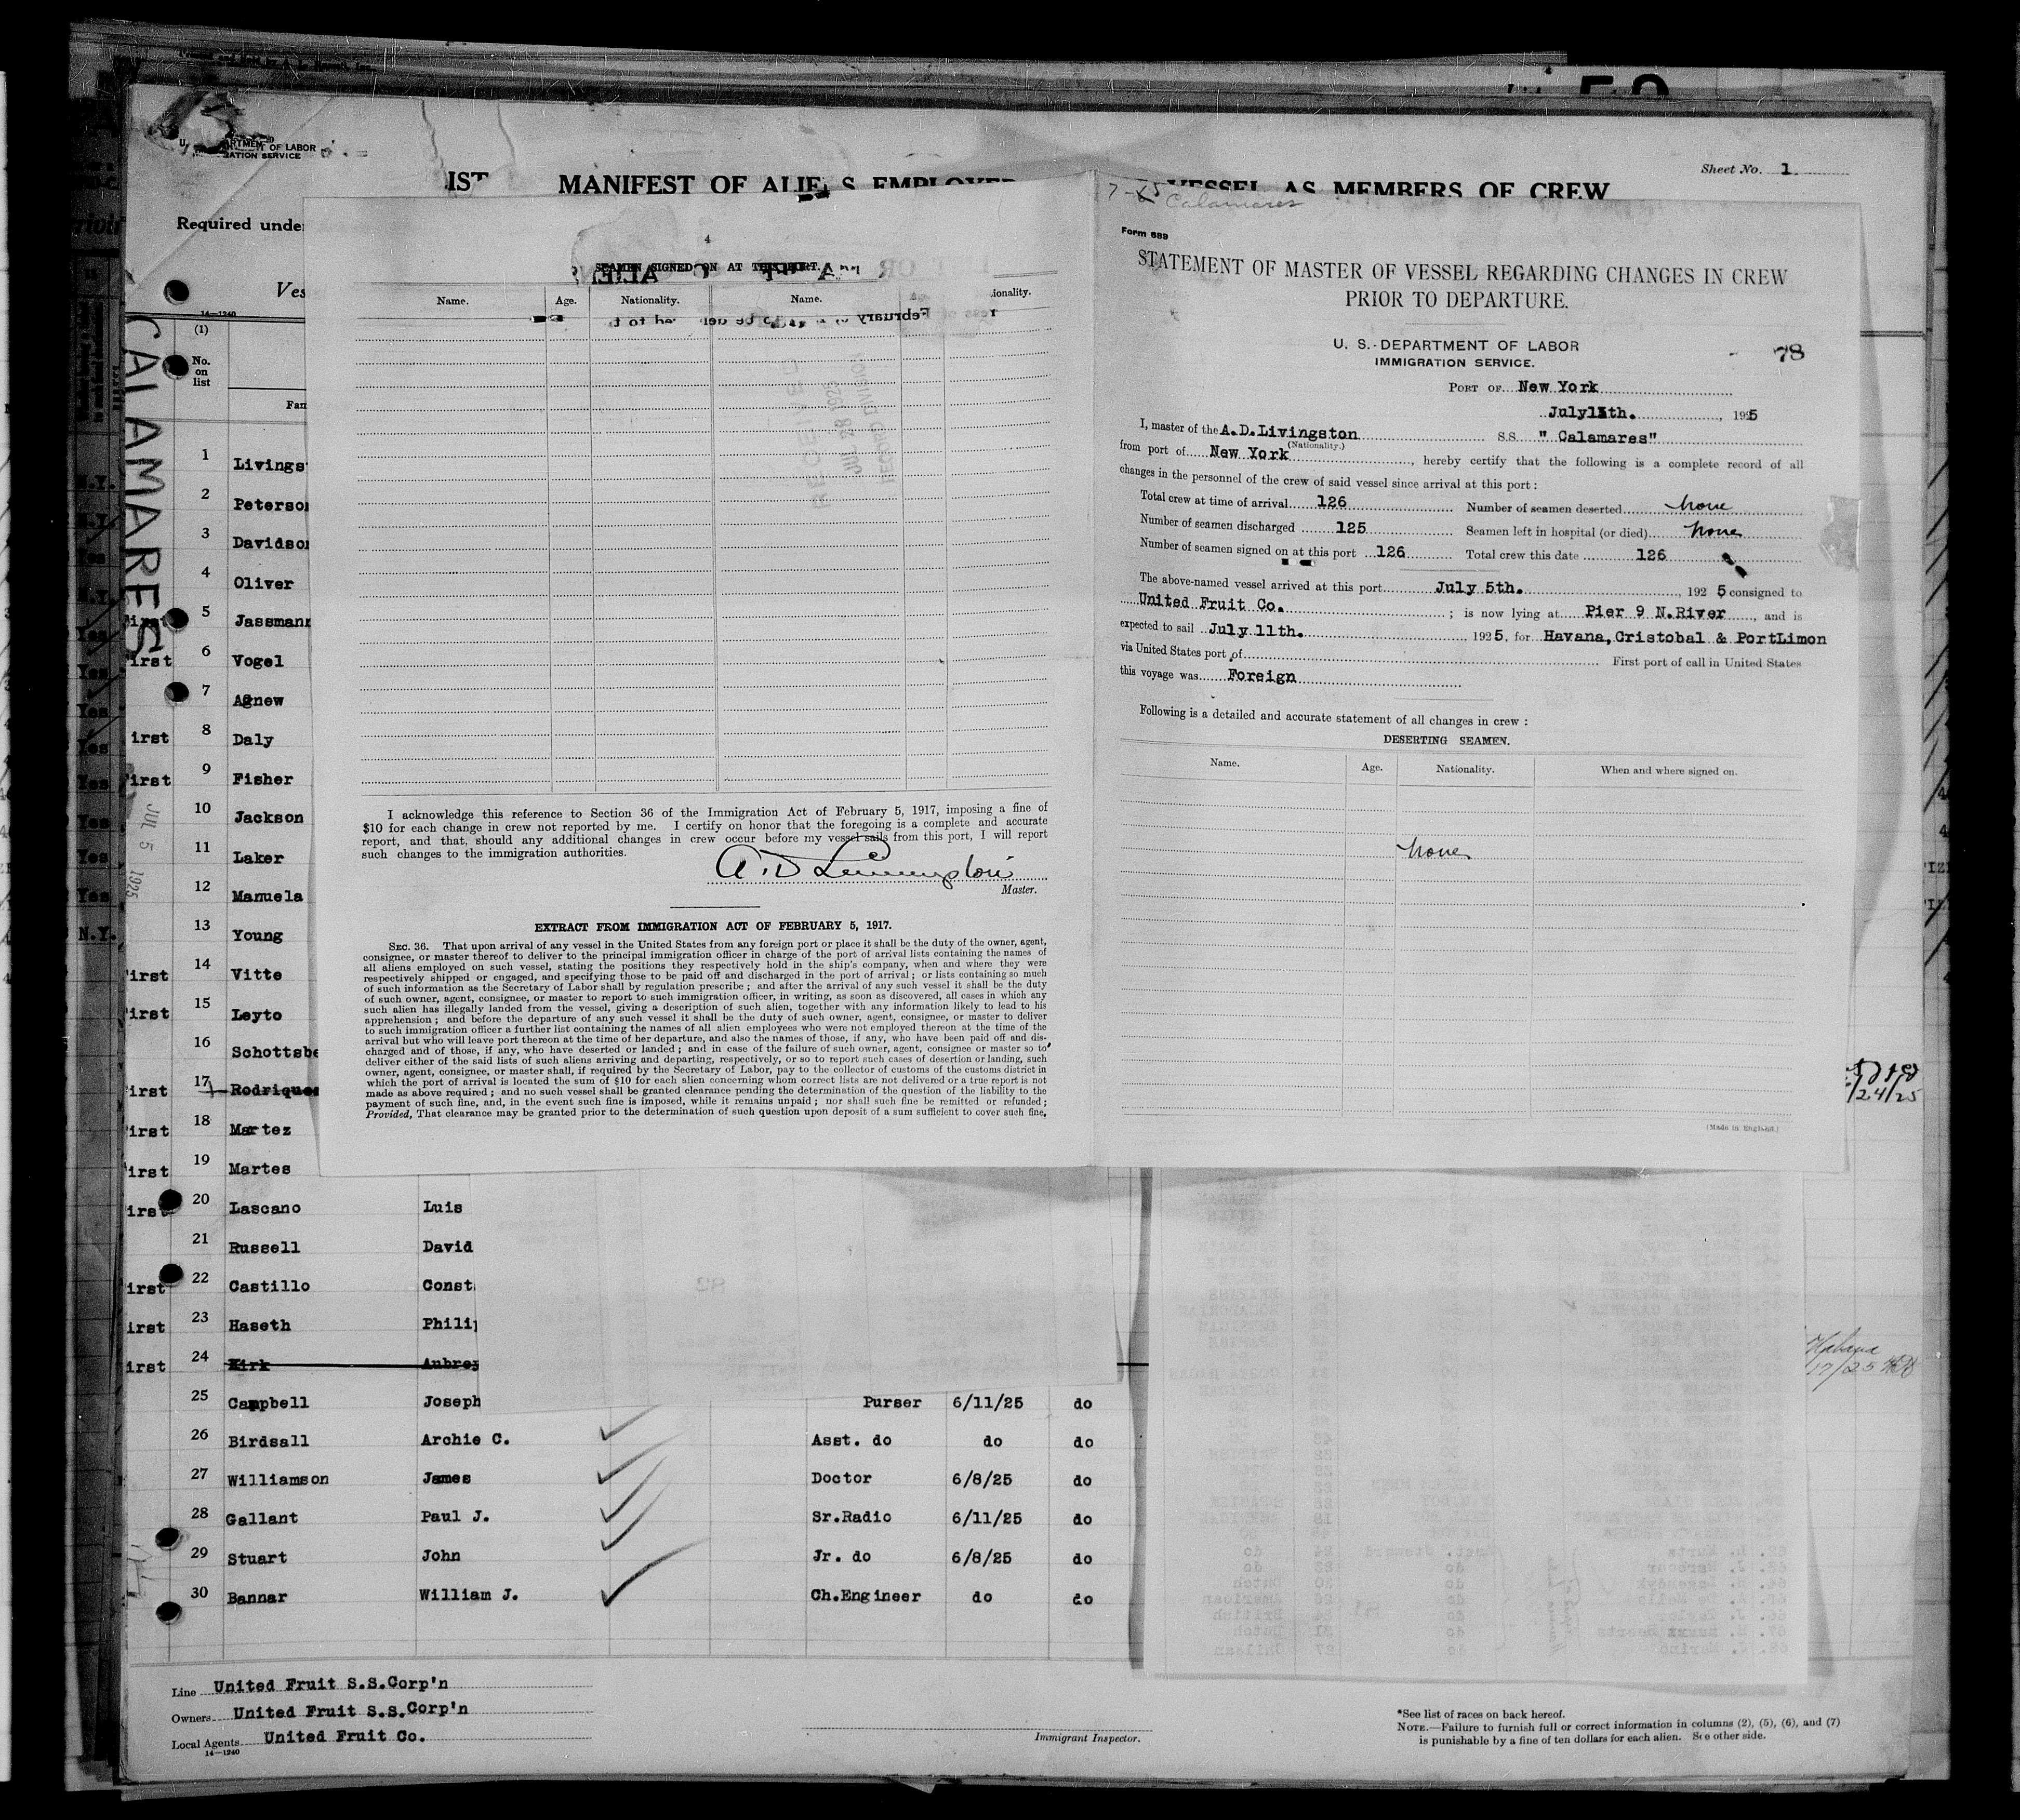 U. DEPARTMENT OF LABOR
IMMIGRATION SERVICE
Sheet No. 1
LIST MANIFEST OF ALIENS EMPLOYED VESSEL AS MEMBERS OF CREW
Required unde
Ves
14—1240
CALAMARES
JUL 5 1925
(1)
No. on list
Fam
1 Livings
2 Peterson
3 Davidson
4 Oliver
First 5 Jassmann
First 6 Vogel
7 Agnew
irst 8 Daly
First 9 Fisher
10 Jackson
11 Laker
12 Manuela
13 Young
First 14 Vitte
First 15 Leyto
16 Schottsbe
First 17 Rodriques
First 18 Martez
First 19 Martes
irst 20 Lascano Luis
21 Russell David
irst 22 Castillo Const
irst 23 Haseth Philip
irst 24 Kirk Aubrey
25 Campbell Joseph Purser 6/11/25 do
26 Birdsall Archie C. Asst. do do do
27 Williamson James Doctor 6/8/25 do
28 Gallant Paul J. Sr.Radio 6/11/25 do
29 Stuart John Jr. do 6/8/25 do
30 Bannar William J. Ch.Engineer do do
Line United Fruit S.S.Corp'n
Owners United Fruit S.S.Corp'n
Local Agents United Fruit Co.
14—1240
Immigrant Inspector.
*See list of races on back hereof.
NOTE.—Failure to furnish full or correct information in columns (2), (5), (6), and (7)
is punishable by a fine of ten dollars for each alien. See other side.
4
SEAMEN SIGNED ON AT THIS PORT.
Name. Age. Nationality. Name. ionality.
RECEIVED
JUL 28 1925
RECORD DIVISION
I acknowledge this reference to Section 36 of the Immigration Act of February 5, 1917, imposing a fine of
$10 for each change in crew not reported by me. I certify on honor that the foregoing is a complete and accurate
report, and that, should any additional changes in crew occur before my vessel sails from this port, I will report
such changes to the immigration authorities.
A. D Livingston
Master.
EXTRACT FROM IMMIGRATION ACT OF FEBRUARY 5, 1917.
SEC. 36. That upon arrival of any vessel in the United States from any foreign port or place it shall be the duty of the owner, agent,
consignee, or master thereof to deliver to the principal immigration officer in charge of the port of arrival lists containing the names of
all aliens employed on such vessel, stating the positions they respectively hold in the ship's company, when and where they were
respectively shipped or engaged, and specifying those to be paid off and discharged in the port of arrival; or lists containing so much
of such information as the Secretary of Labor shall by regulation prescribe; and after the arrival of any such vessel it shall be the duty
of such owner, agent, consignee, or master to report to such immigration officer, in writing, as soon as discovered, all cases in which any
such alien has illegally landed from the vessel, giving a description of such alien, together with any information likely to lead to his
apprehension; and before the departure of any such vessel it shall be the duty of such owner, agent, consignee, or master to deliver
to such immigration officer a further list containing the names of all alien employees who were not employed thereon at the time of the
arrival but who will leave port thereon at the time of her departure, and also the names of those, if any, who have been paid off and dis-
charged and of those, if any, who have deserted or landed; and in case of the failure of such owner, agent, consignee or master so to
deliver either of the said lists of such aliens arriving and departing, respectively, or so to report such cases of desertion or landing, such
owner, agent, consignee, or master shall, if required by the Secretary of Labor, pay to the collector of customs of the customs district in
which the port of arrival is located the sum of $10 for each alien concerning whom correct lists are not delivered or a true report is not
made as above required; and no such vessel shall be granted clearance pending the determination of the question of the liability to the
payment of such fine, and, in the event such fine is imposed, while it remains unpaid; nor shall such fine be remitted or refunded;
Provided, That clearance may be granted prior to the determination of such question upon deposit of a sum sufficient to cover such fine,
Calamares
Form 689
STATEMENT OF MASTER OF VESSEL REGARDING CHANGES IN CREW
PRIOR TO DEPARTURE.
U. S. DEPARTMENT OF LABOR
IMMIGRATION SERVICE.
78
PORT OF New York
July11th., 1925
I, master of the A.D.Livingston S.S. "Calamares"
(Nationality.)
from port of New York, hereby certify that the following is a complete record of all
changes in the personnel of the crew of said vessel since arrival at this port:
Total crew at time of arrival 126 Number of seamen deserted None
Number of seamen discharged 125 Seamen left in hospital (or died) None
Number of seamen signed on at this port 126 Total crew this date 126
The above-named vessel arrived at this port July 5th., 1925 consigned to
United Fruit Co.; is now lying at Pier 9 N.River, and is
expected to sail July 11th., 1925, for Havana,Cristobal & PortLimon
via United States port of First port of call in United States
this voyage was Foreign
Following is a detailed and accurate statement of all changes in crew:
DESERTING SEAMEN.
Name. Age. Nationality. When and where signed on.
None
(Made in England.)
/24/25
Habana
17/25